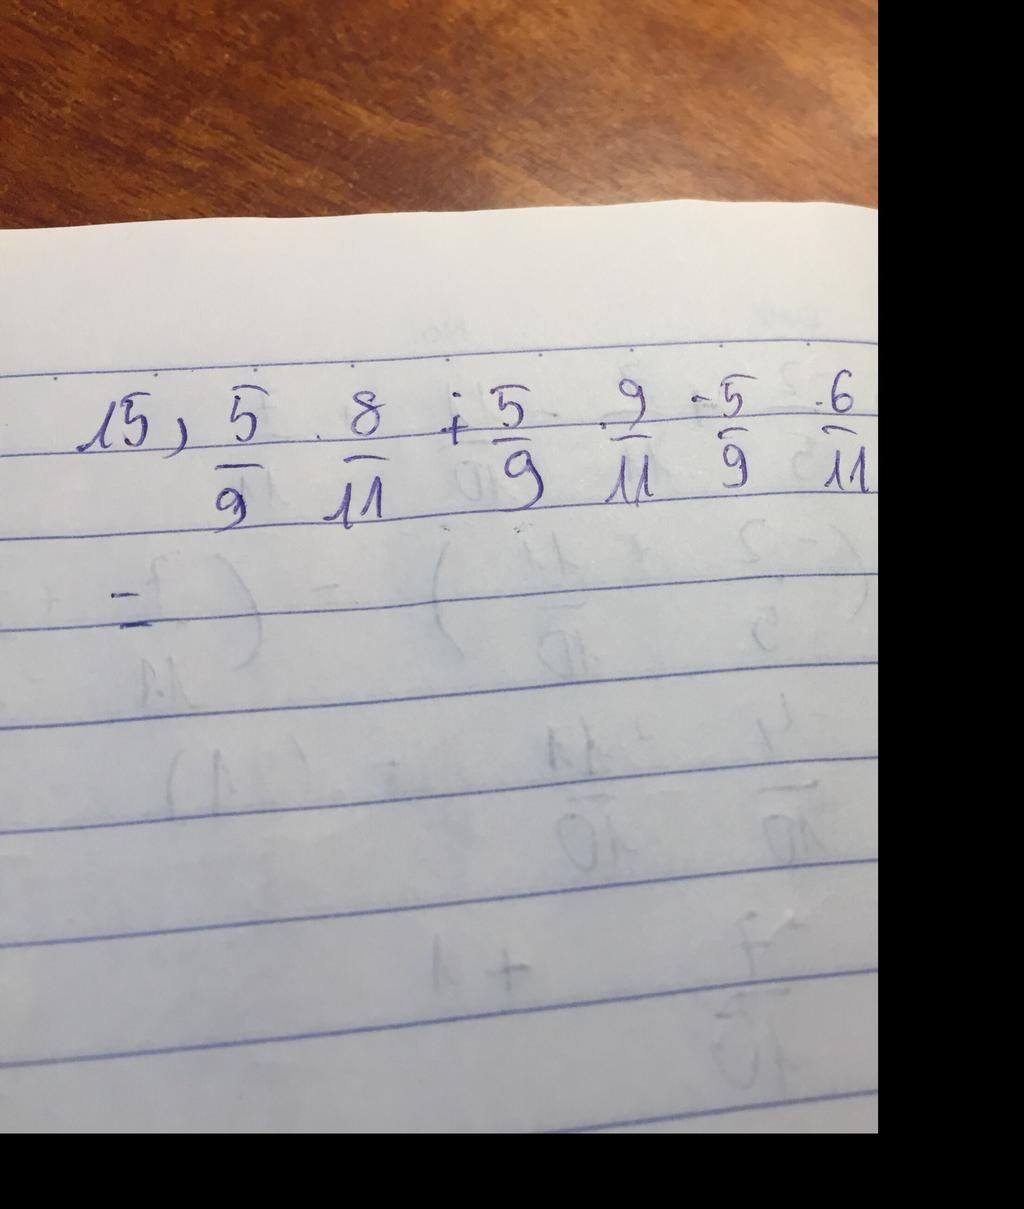 15, 5/9 . 8/11 + 5/9 . 9/11 - 5/9 . 6/11
=